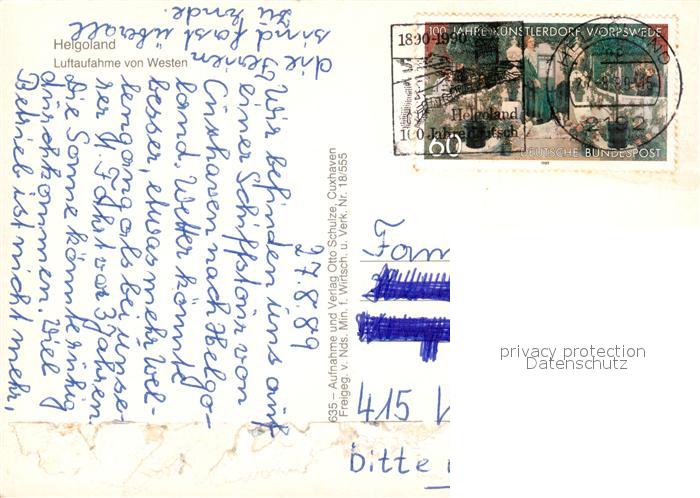 Helgoland
Luftaufahme von Westen
27.8.89
Wir befinden uns auf
einer Schiffstour von
Cuxhaven nach Helgo-
land. Wetter könnte
besser, etwas mehr Wel-
lengang als bei unse-
rer H. Fahrt vor 3 Jahren.
Die Sonne könnte ruhig
durchkommen. Viel
Betrieb ist nicht mehr,
die Ferien
sind fast überall
zu Ende.
635 – Aufnahme und Verlag Otto Schulze, Cuxhaven
Freigeg. v. Nds. Min. f. Wirtsch. u. Verk. Nr. 18/555
1890-1990
Helgoland
100 Jahre deutsch
100 JAHRE KÜNSTLERDORF WORPSWEDE
60
DEUTSCHE BUNDESPOST
1989
2192
Fam
415
bitte
privacy protection
Datenschutz